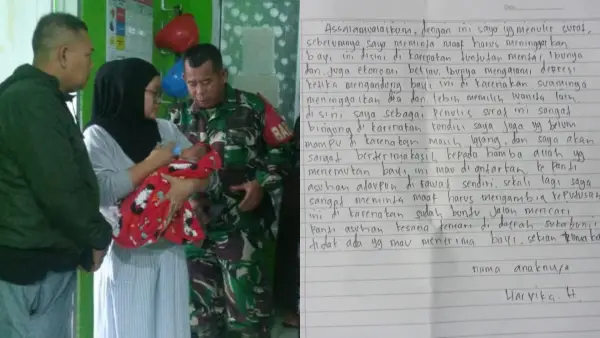 Assalamualaikum, dengan ini saya yg menulis surat,
sebelumnya saya meminta maaf harus meninggalkan
bayi ini disini di karenakan kesehatan mental ibunya
dan juga ekonomi belum. ibunya mengalami depresi
ketika mengandung bayi ini di karenakan suaminya
meninggalkan dia dan lebih memilih wanita lain
disini saya sebagai penulis surat ini sangat
bingung di karenakan kondisi saya juga yg belum
mampu di karenakan masih lajang dan saya akan
sangat berterimakasih kepada hamba allah yg
menemukan bayi ini mau di antarkan ke panti
asuhan ataupun di rawat sendiri. sekali lagi saya
sangat meminta maaf harus mengambil keputusan
ini di karenakan sudah buntu jalan mencari
panti asuhan kesana kemari di daerah sukabumi
tidak ada yg mau menerima bayi. sekian
nama anaknya
Haryika. H.